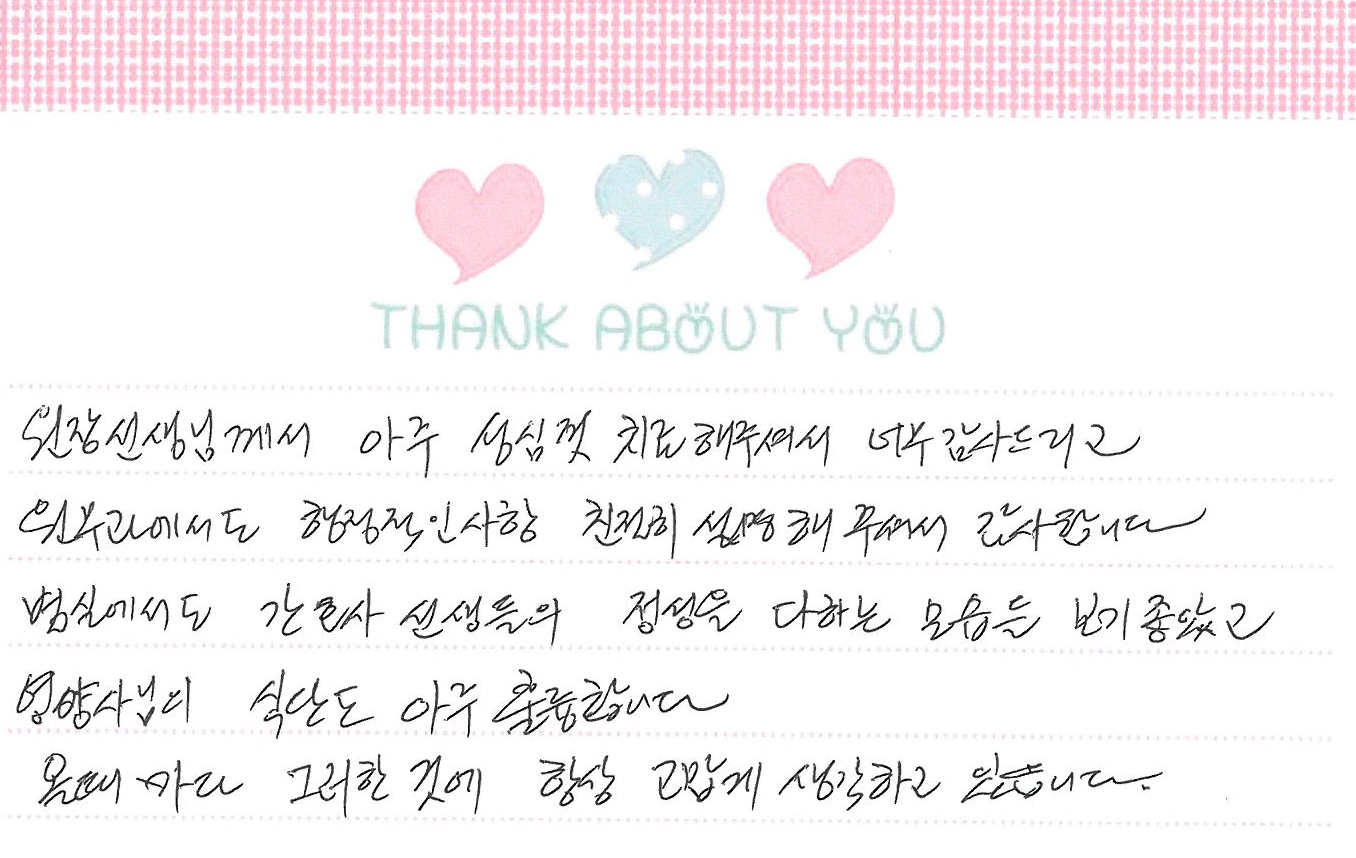 THANK ABOUT YOU
원장선생님께서 아주 성심껏 치료해주셔서 너무감사드리고
원무과에서도 행정적인사항 친절히 설명해 주셔서 감사합니다
병실에서도 간호사 선생들의 정성을 다하는 모습들 보기좋았고
영양사님의 식단도 아주 훌륭합니다
올때 마다 그러한 것에 항상 고맙게 생각하고 있습니다.